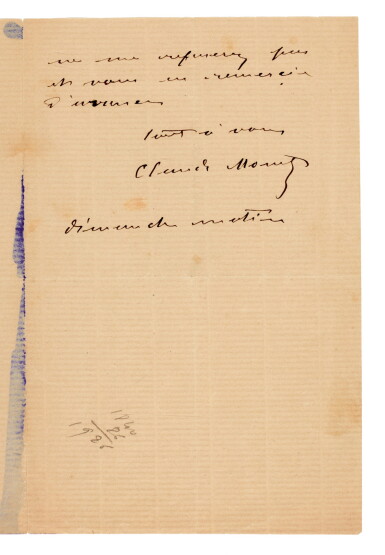 ne me refuserez pas
et vous en remercie
d'avance
tout à vous
Claude Monet
dimanche matin